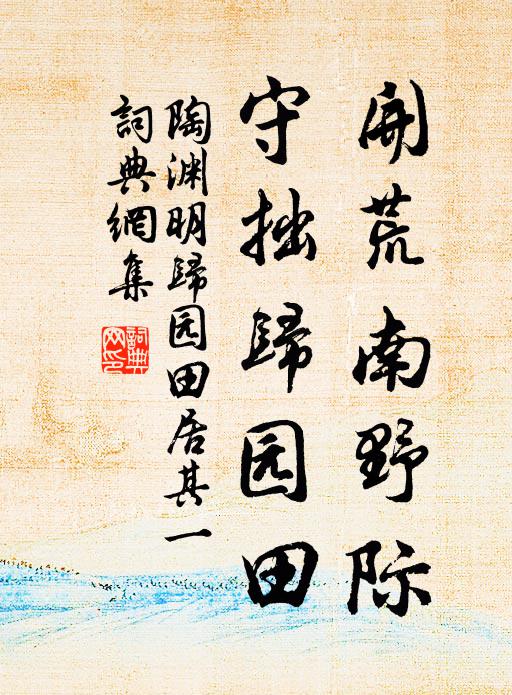 開荒南野际
守拙歸园田
陶渊明歸园田居其一
詞典網集
詞典網印